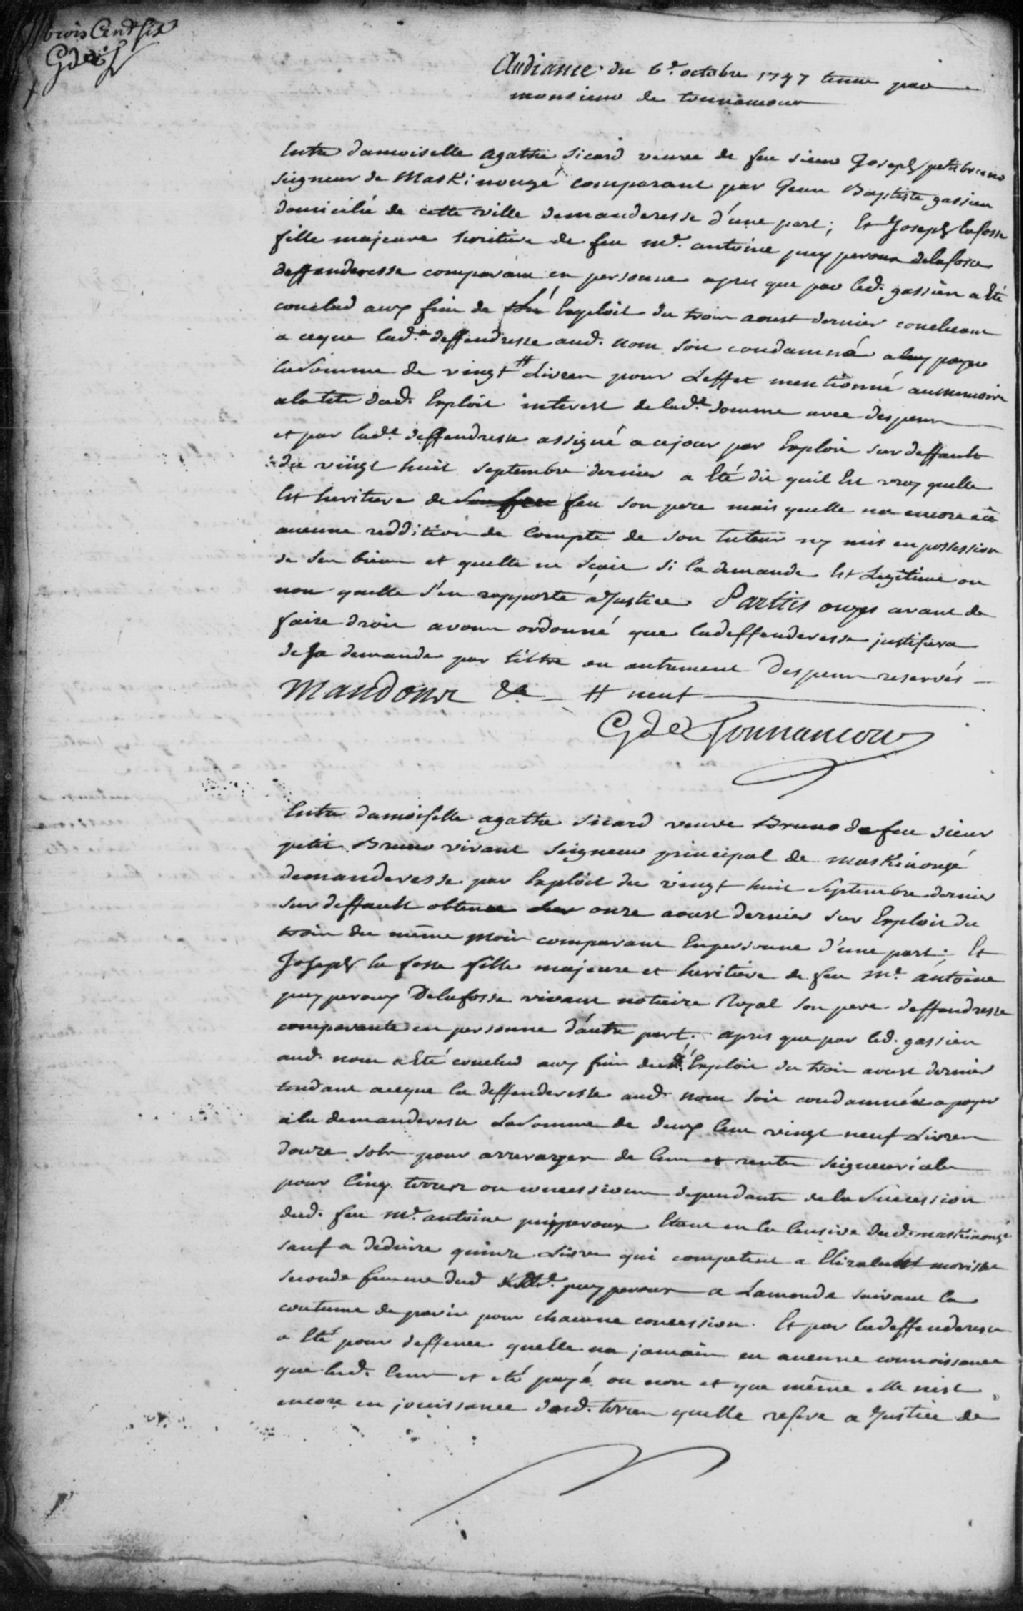 trois Cent six
G de T
Audiance du 6e. octobre 1747 tenue par
monsieur de tonnancour
Entre damoiselle agathe Sicard veuve de feu sieur Joseph petit bruno
seigneur de Maskinongé comparant par Jean Baptiste gassien
domicilié de cette ville demanderesse d'une part; Et Joseph lafosse
fille majeure heritiere de feu mr. antoine puyperoux delafosse
deffenderesse comparant en personne apres que par led. gassien a Eté
conclud aux fins de Exploit du trois aoust dernier concluant
a ceque lad.e deffendresse aud. nom soit condamné a luy payer
la Somme de vingt # Livres pour L'effet mentionné au memoire
a la tete dud. Exploit interest de lad.e somme avec despens
et par lad.e deffendresse assigné a cejour par Exploit sur deffault
du vingt huit septembre dernier a Eté dit quil Est vray quelle
Est heritiere de feu son pere mais quelle na encore eté
aucune reddition de Compte de son tuteur ny mis en possession
de ses biens et quelle ne scait si la demande Est Legitime ou
non quelle s'en rapporte a Justice Parties ouyes avant de
faire droit avons ordonné que ladeffenderesse justifiera
de sa demande par titre ou autrement Despens reservés
Mandons &a # neuf
G de Tonnancour
Entre damoiselle agathe Sicard veuve Bruno de feu sieur
petit Bruno vivant Seigneur principal de maskinongé
demanderesse par Exploit du vingt huit Septembre dernier
sur deffault obtenu onze aoust dernier sur Exploit du
trois du même mois comparant En personne d'une part; Et
Joseph la fosse fille majeure et heritiere de feu mr. antoine
puyperoux Delafosse vivant notaire Royal son pere deffendresse
comparante en personne d'autre part. apres que par led. gassien
aud. nom a Eté conclud aux fins dud. Exploit du trois aoust dernier
tendant aceque la deffenderesse aud. nom soit condamnée a payer
a la demanderesse La Somme de deux Cent vingt neuf Livres
douze sols pour arrerages de Cens et rentes seigneuriales
pour Cinq terres ou concessions dependante de la Succession
dud. feu mr. antoine puyperoux Etant en la Censive dud. maskinongé
sauf a deduire quinze Livres qui competent a Elizabeth morisse
seconde femme dud. puyperoux a Lamonde suivant la
coutume de paris pour chacune concession. Et par ladeffenderesse
a Eté pour deffence quelle na jamais eu aucune connoissance
que lesd. Cens et eté payé ou non et que même elle nest
encore en jouissance desd. terres quelle refere a Justice de